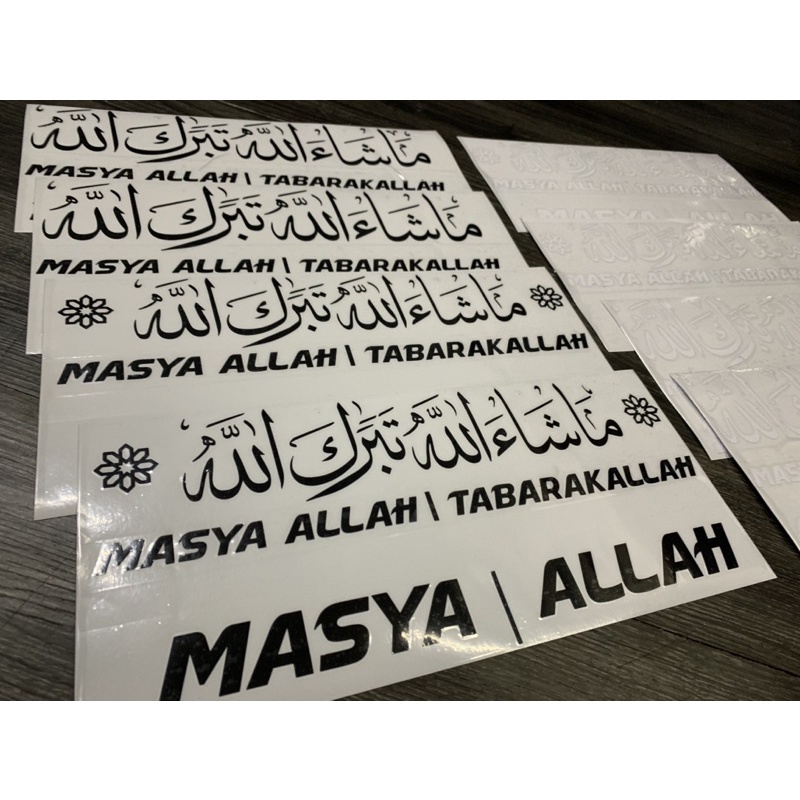 مَاشَاءَاللهُ تَبَرَكَ اللهُ
MASYA ALLAH | TABARAKALLAH
مَاشَاءَاللهُ تَبَرَكَ اللهُ
MASYA ALLAH | TABARAKALLAH
مَاشَاءَاللهُ تَبَرَكَ اللهُ
MASYA ALLAH | TABARAKALLAH
مَاشَاءَاللهُ تَبَرَكَ اللهُ
MASYA ALLAH | TABARAKALLAH
MASYA | ALLAH
MASYA ALLAH | TABARAKALLAH
MASYA | ALLAH
MASYA ALLAH | TABARAKA